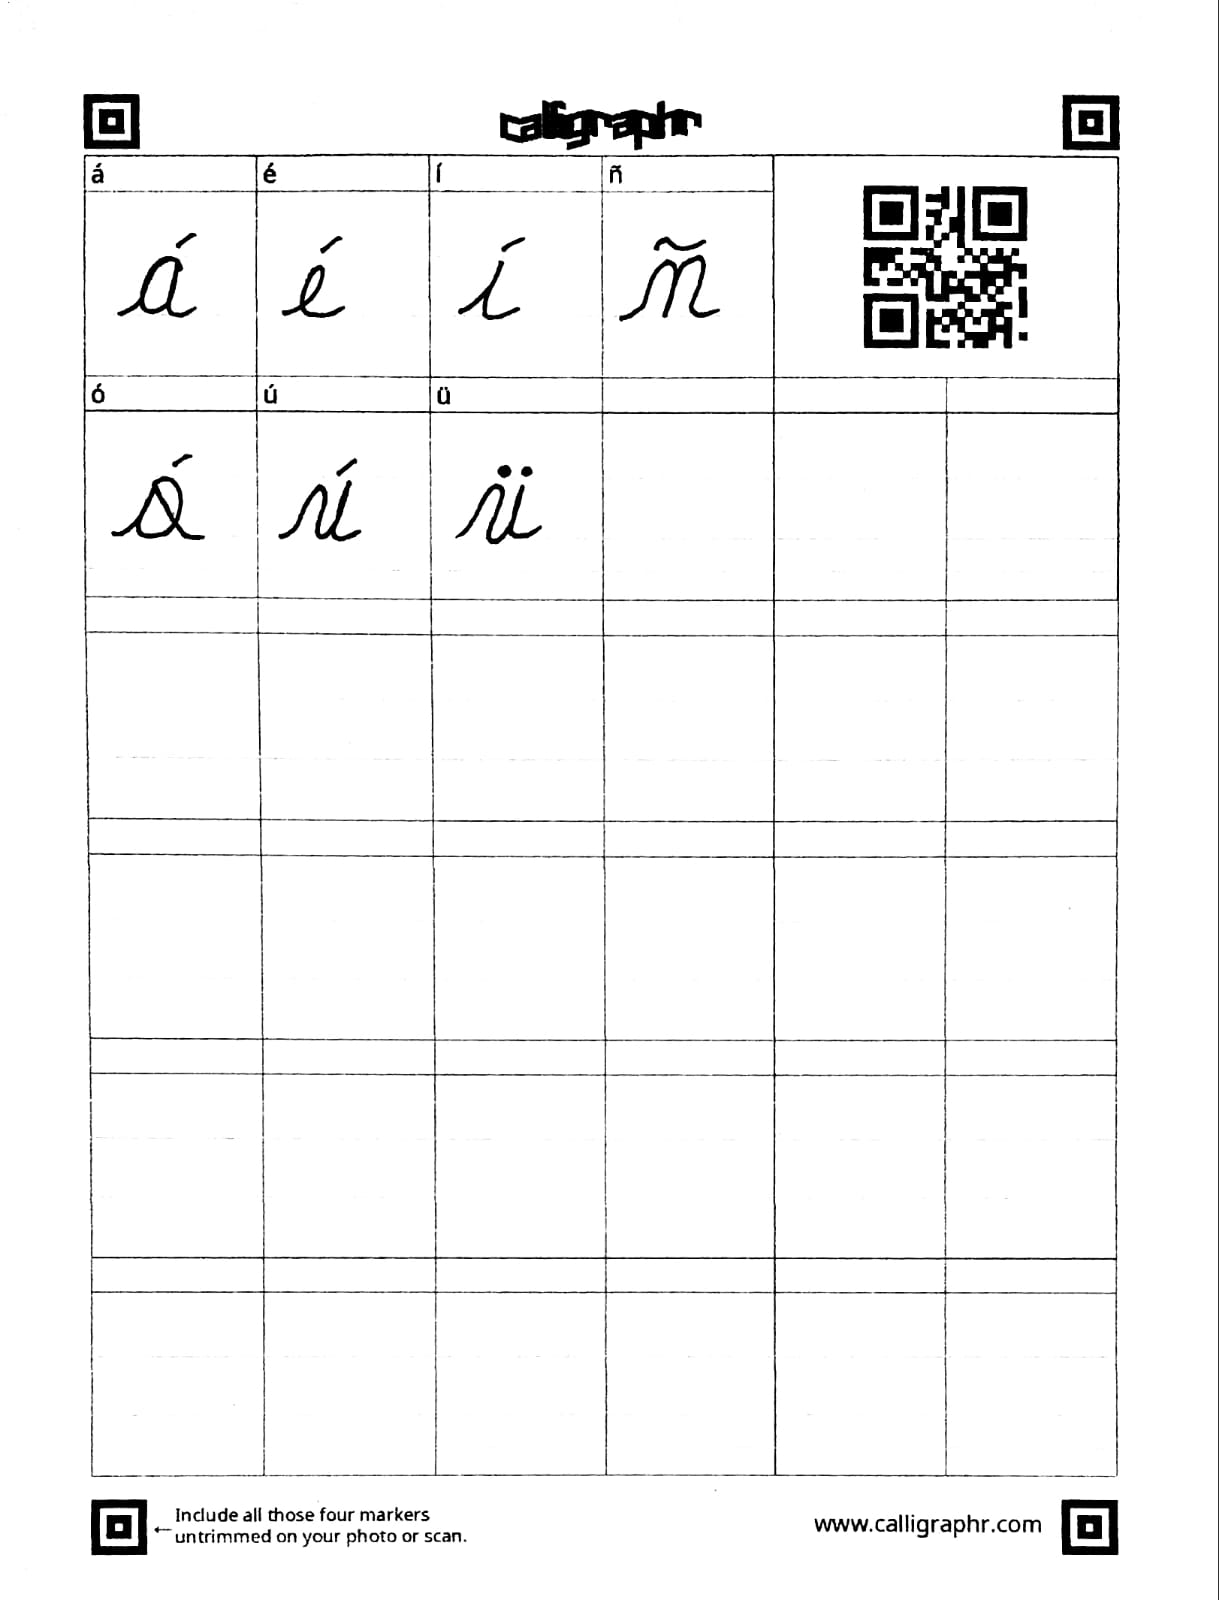 calligraphr
á é í ñ
á é í ñ
ó ú ü
ó ú ü
Include all those four markers
← untrimmed on your photo or scan.
www.calligraphr.com